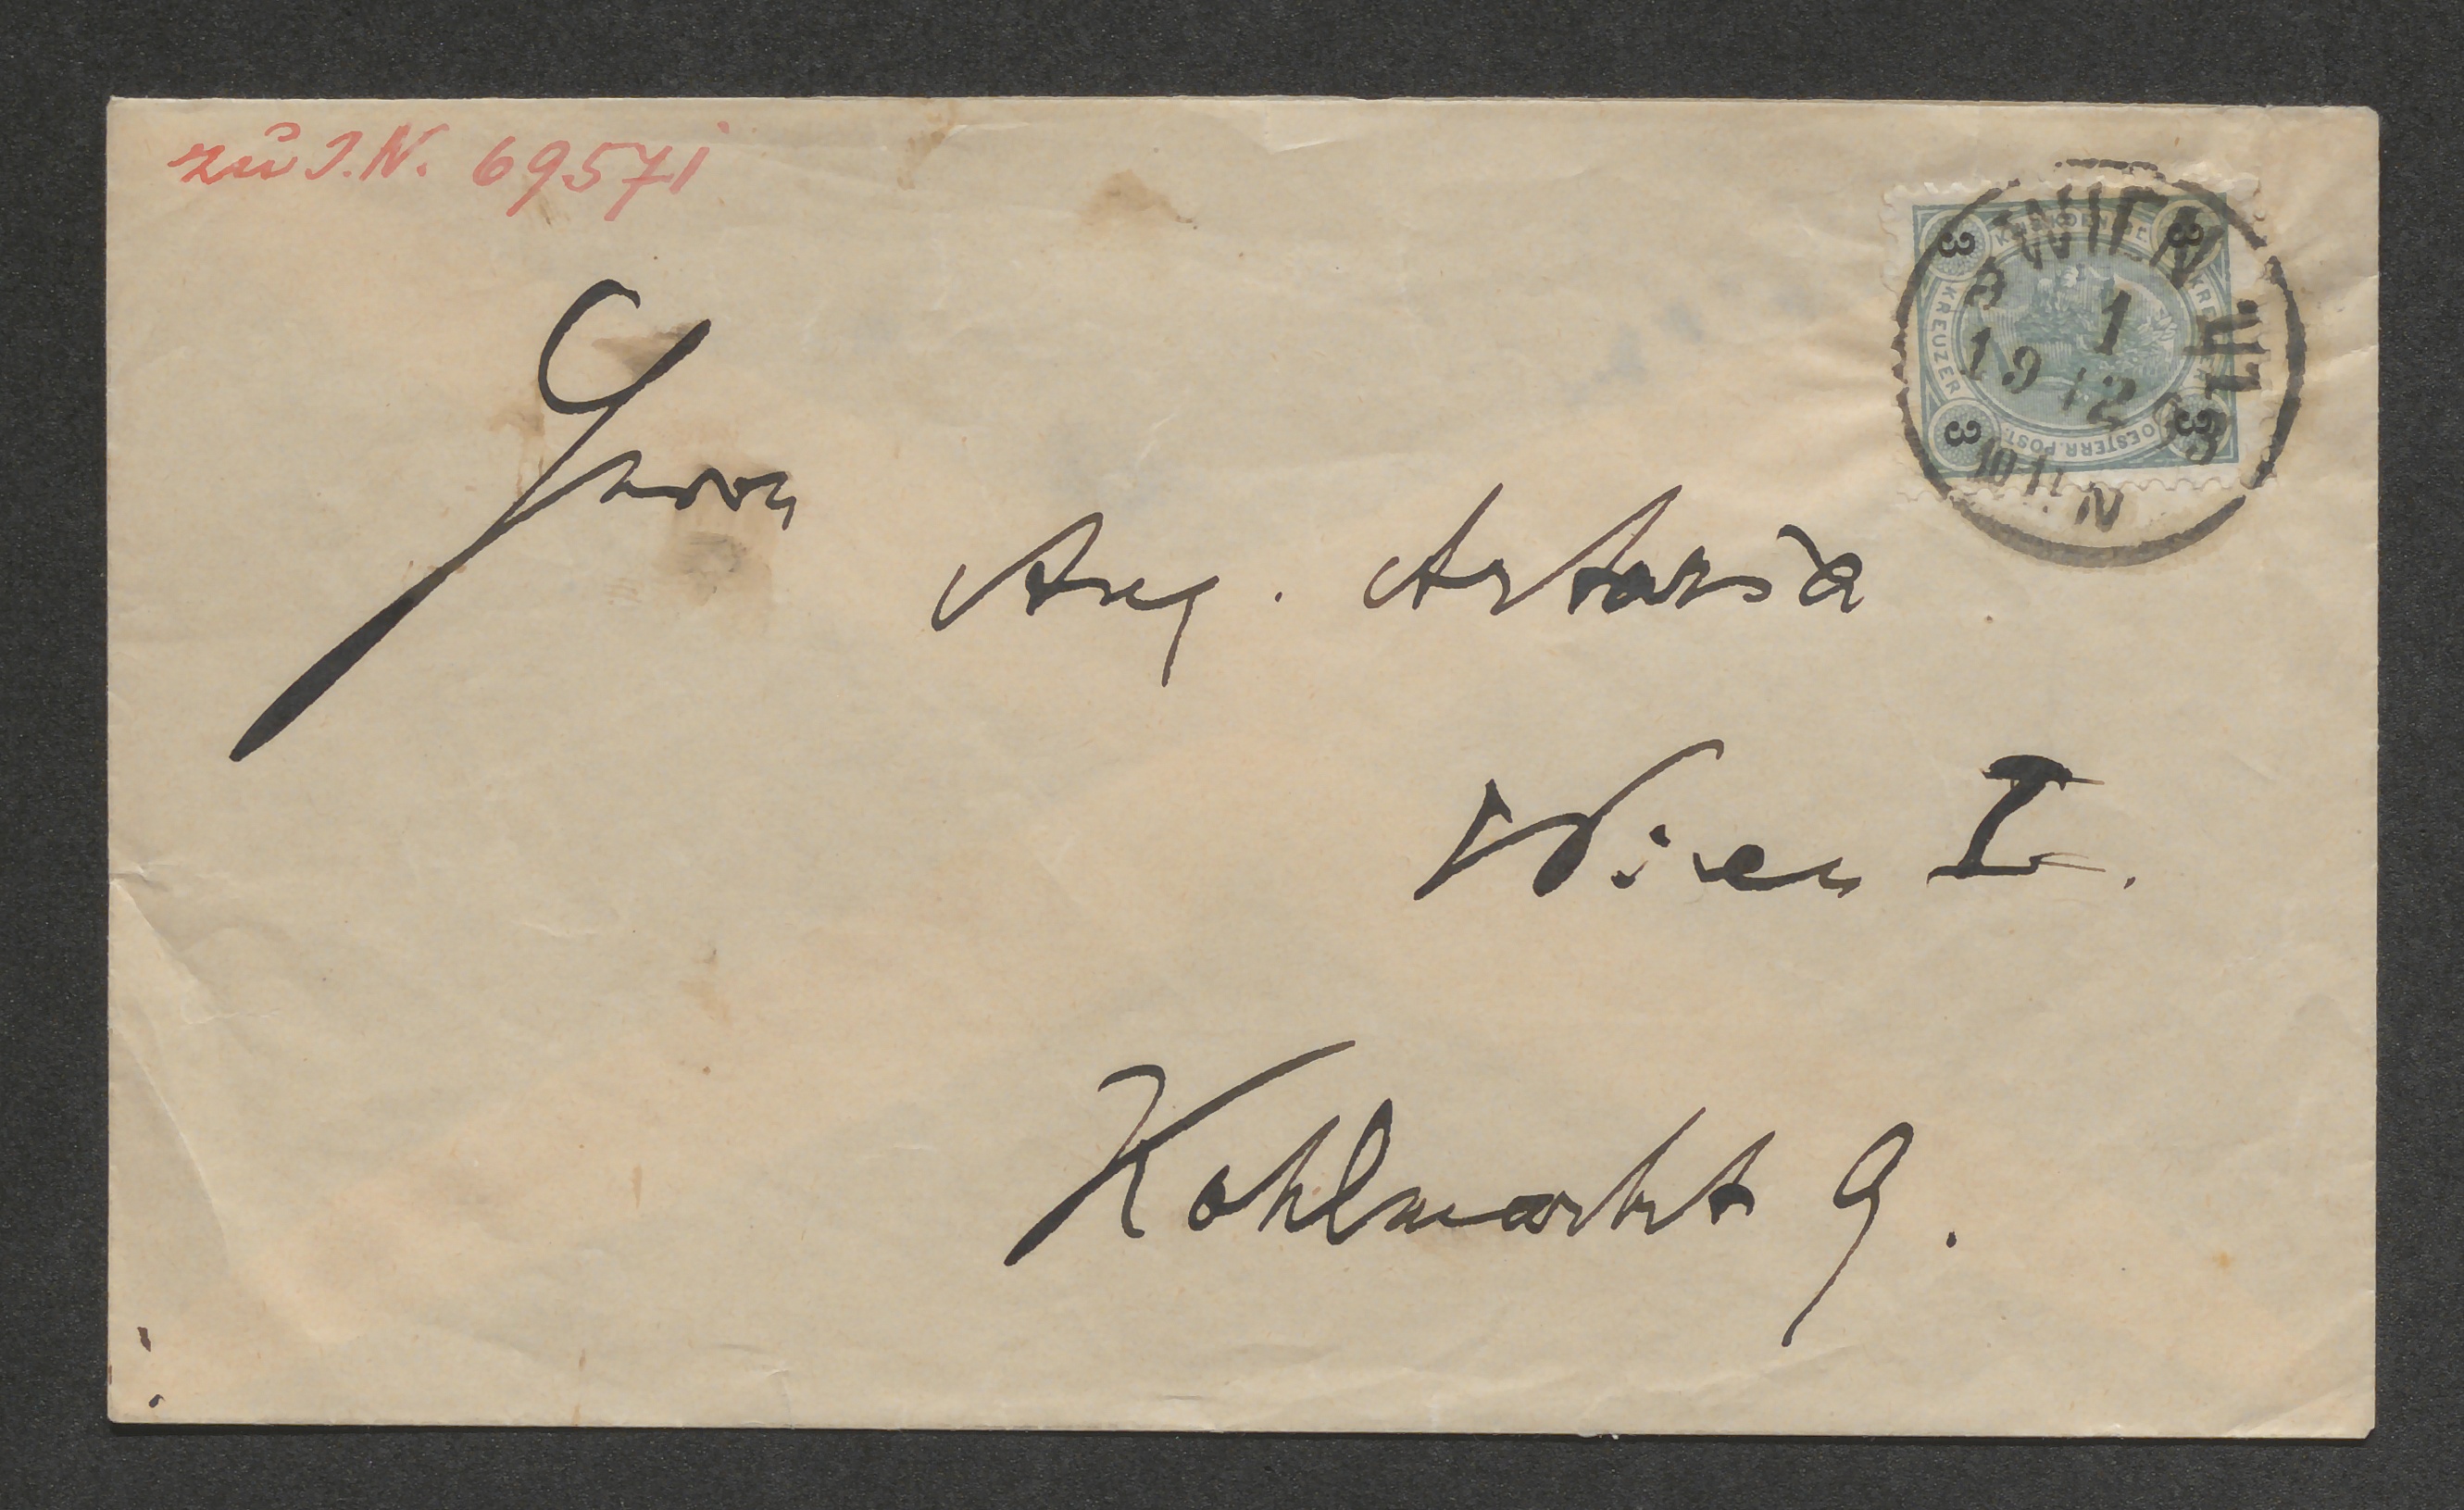 zu I.N. 69571
WIEN
3 1
19 12
3 3
KREUZER
OESTERR. POST.
3 3
10-11 N
Herrn
Aug. Artaria
Wien I.
Kohlmarkt 9.